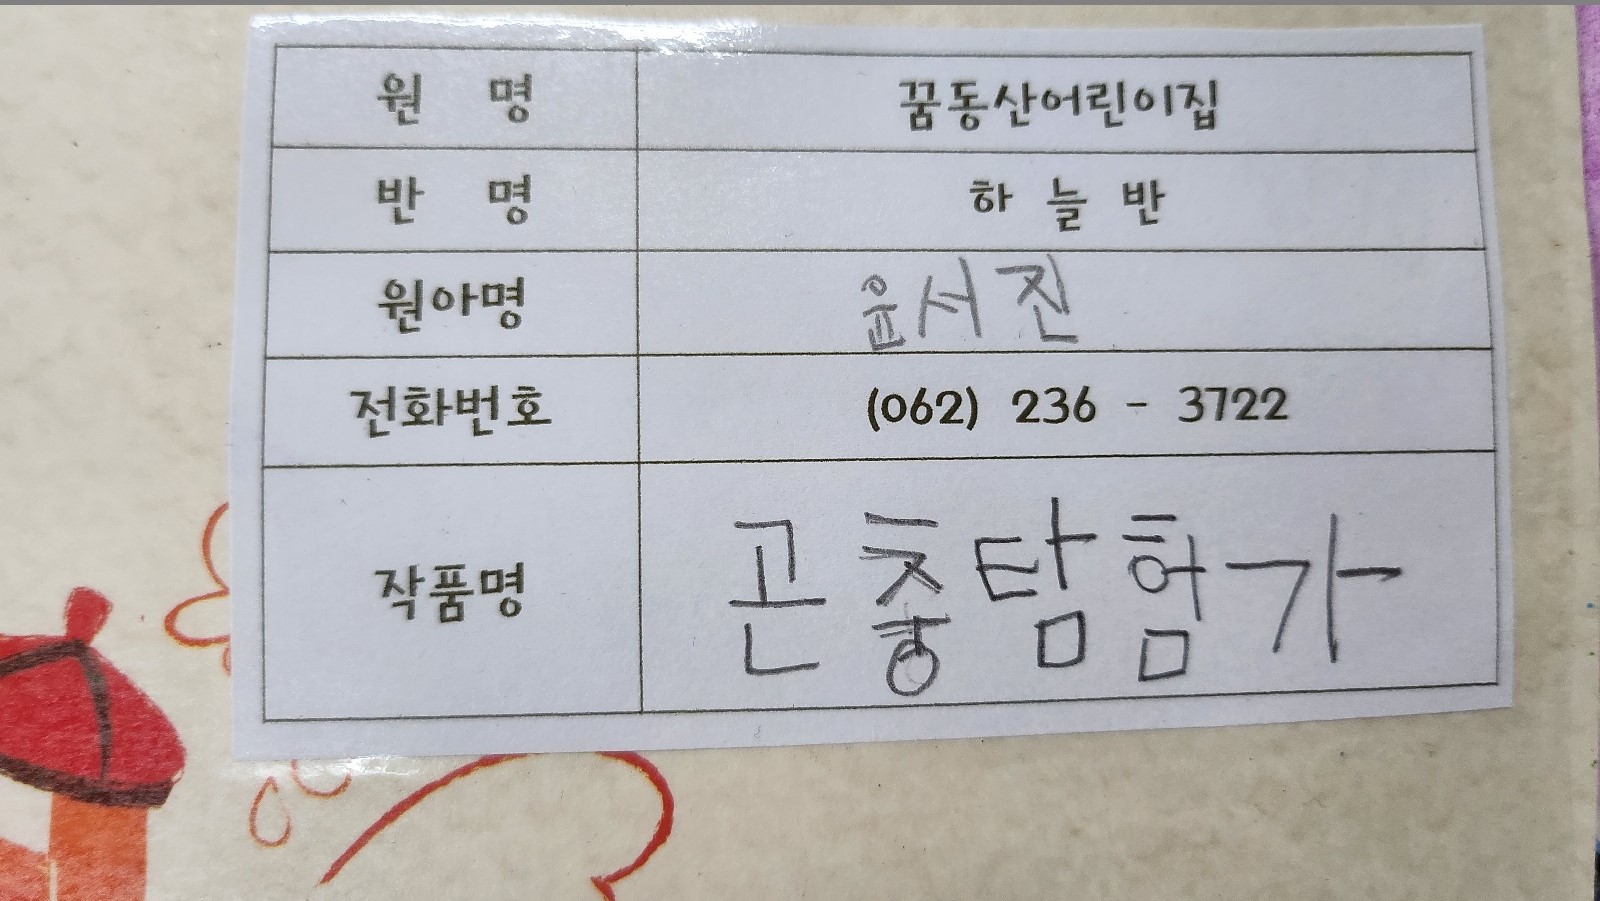 원 명 꿈동산어린이집
반 명 하 늘 반
원아명 윤서진
전화번호 (062) 236 - 3722
작품명 곤충탐험가